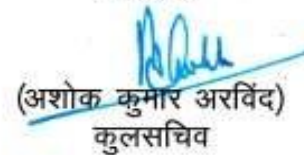 (अशोक कुमार अरविंद)
कुलसचिव